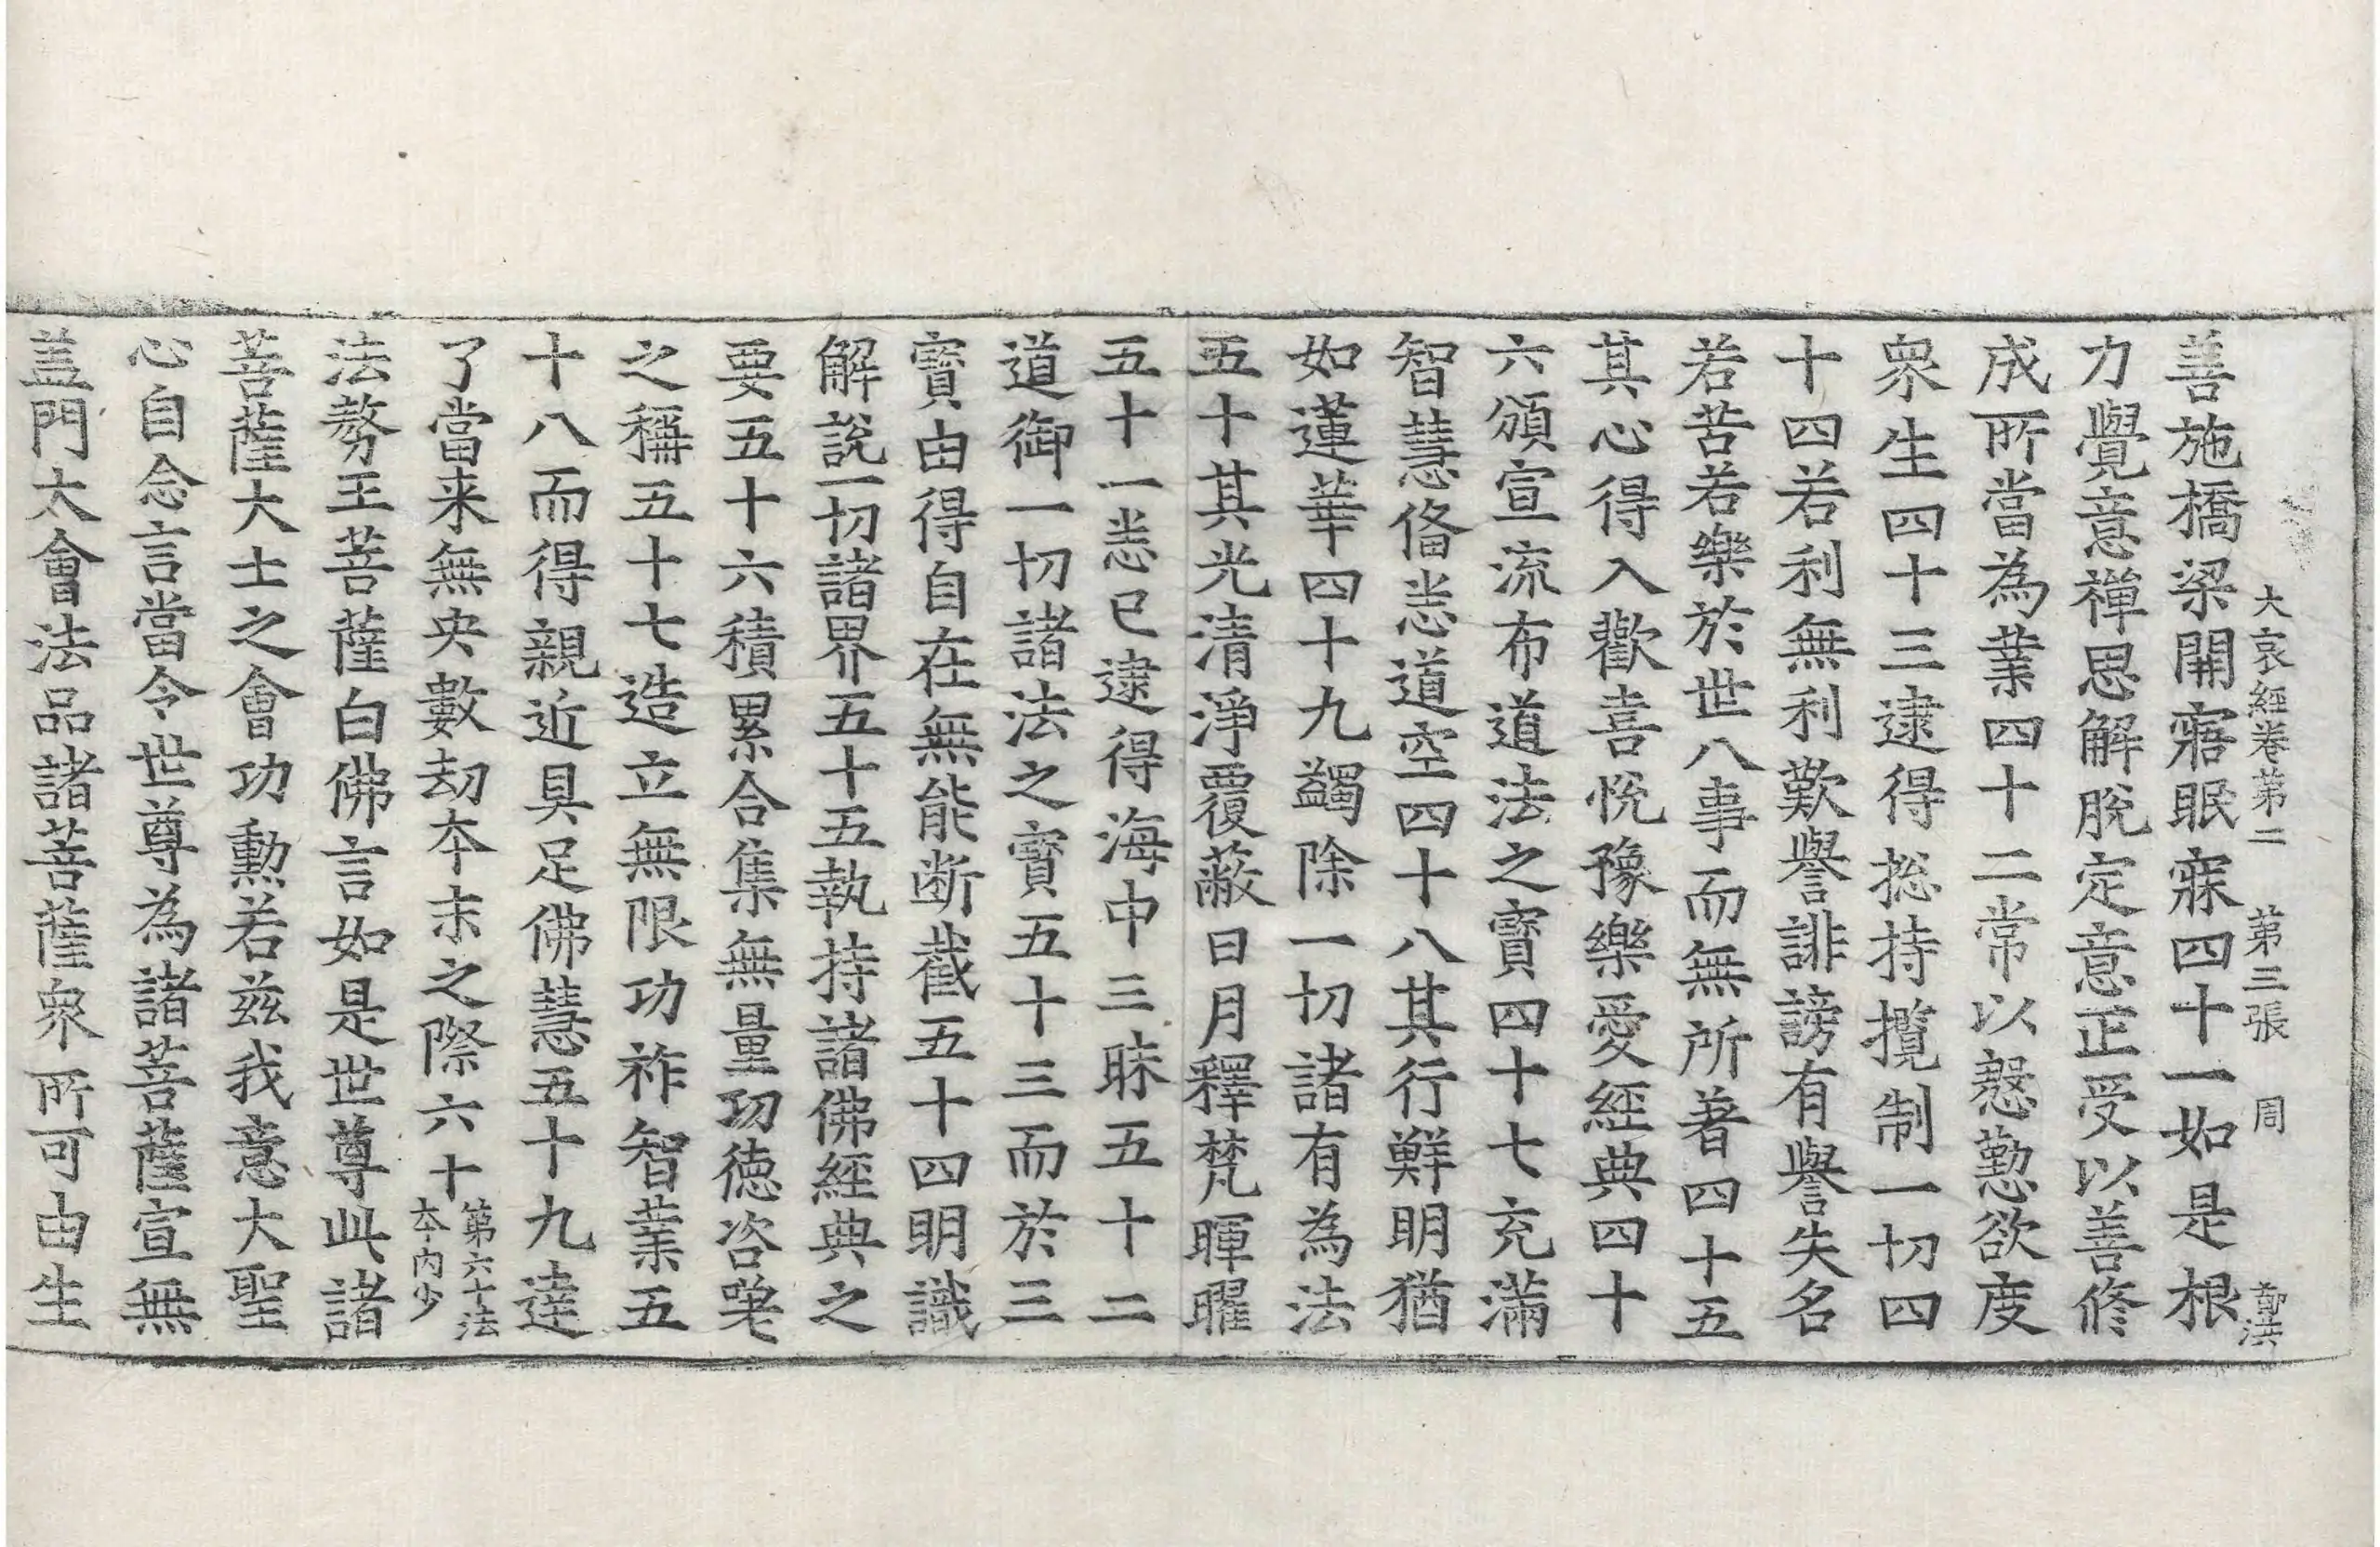 大哀經卷第二 第三張 周 鄭洪
善施橋梁開寤眠寐四十一如是根
力覺意禪思解脫定意正受以善修
成所當為業四十二常以慇懃欲度
衆生四十三逮得揔持攬制一切四
十四若利無利歎譽誹謗有譽失名
若苦若樂於世八事而無所著四十五
其心得入歡喜悅豫樂愛經典四十
六頒宣流布道法之寶四十七充滿
智慧俻悉道空四十八其行鮮明猶
如蓮華四十九蠲除一切諸有為法
五十其光清淨覆蔽日月釋梵暉曜
五十一悉已逮得海中三昧五十二
道御一切諸法之寶五十三而於三
寶由得自在無能断截五十四明識
解說一切諸界五十五執持諸佛經典之
要五十六積累合集無量功德咨嗟
之稱五十七造立無限功祚智業五
十八而得親近具足佛慧五十九達
了當来無央數劫夲末之際六十第六十法夲内少
法勢王菩薩白佛言如是世尊此諸
菩薩大士之會功勳若茲我意大聖
心自念言當令世尊為諸菩薩宣無
盖門大會法品諸菩薩衆所可由生